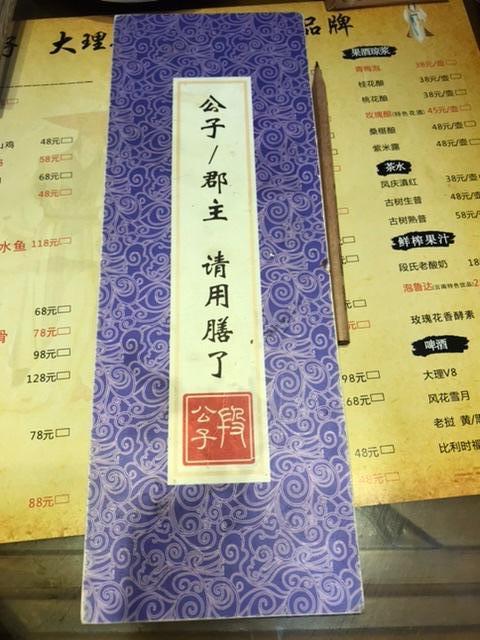 大理
品牌
公子/郡主 请用膳了
段公子
鸡 48元
58元
68元
48元
水鱼 118元
68元
骨 78元
98元
128元
78元
88元
果酒琼浆
青梅泡 38元/壶
桂花酿 38元/壶
桃花酿 38元/壶
玫瑰酿(特色花酒) 45元/壶
桑椹酿 48元/壶
紫米露 48元/壶
茶水
凤庆滇红 38元/壶
古树生普 48元/壶
古树熟普 58元/
鲜榨果汁
段氏老酸奶 18
泡鲁达(云南特色饮品) 2
玫瑰花香酵素
啤酒
98元 大理V8
68元 风花雪月
老挝 黄/黑
48元 比利时福
48元